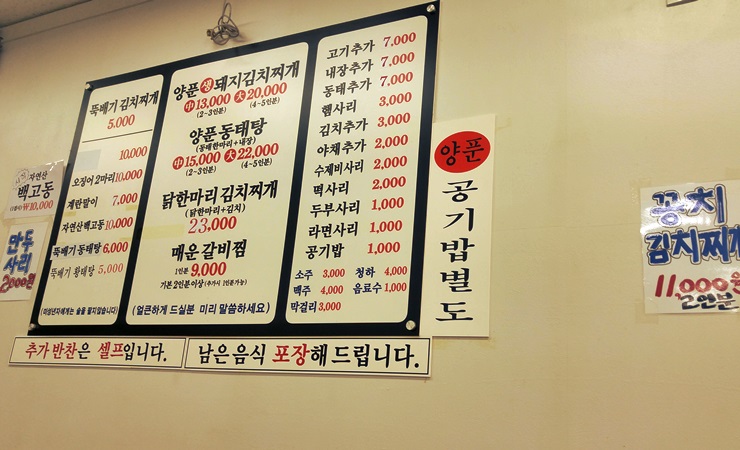 뚝배기 김치찌개
5.000
10,000
오징어 2마리 10,000
계란말이 7,000
자연산백고동 10,000
뚝배기 동태탕 6,000
뚝배기 황태탕 5,000
(미성년자에게는 술을 팔지않습니다)
양푼 생 돼지김치찌개
中 13,000 大 20,000
(2~3인분) (4~5인분)
양푼동태탕
(동태한마리+내장)
中 15,000 大 22,000
(2~3인분) (4~5인분)
닭한마리 김치찌개
(닭한마리+김치)
23,000
매운 갈비찜
1인분 9,000
기본 2인분이상 (추가시 1인분가능)
(얼큰하게 드실분 미리 말씀하세요)
고기추가 7,000
내장추가 7,000
동태추가 7,000
햄사리 3,000
김치추가 3,000
야채추가 2,000
수제비사리 2,000
떡사리 2,000
두부사리 1,000
라면사리 1,000
공기밥 1,000
소주 3,000 청하 4,000
맥주 4,000 음료수 1,000
막걸리 3,000
양푼
공기밥별도
자연산
백고동
₩10,000
만두
사리
2,000원
꽁치
김치찌개
11,000원
2인분
추가 반찬은 셀프입니다.
남은 음식 포장해 드립니다.